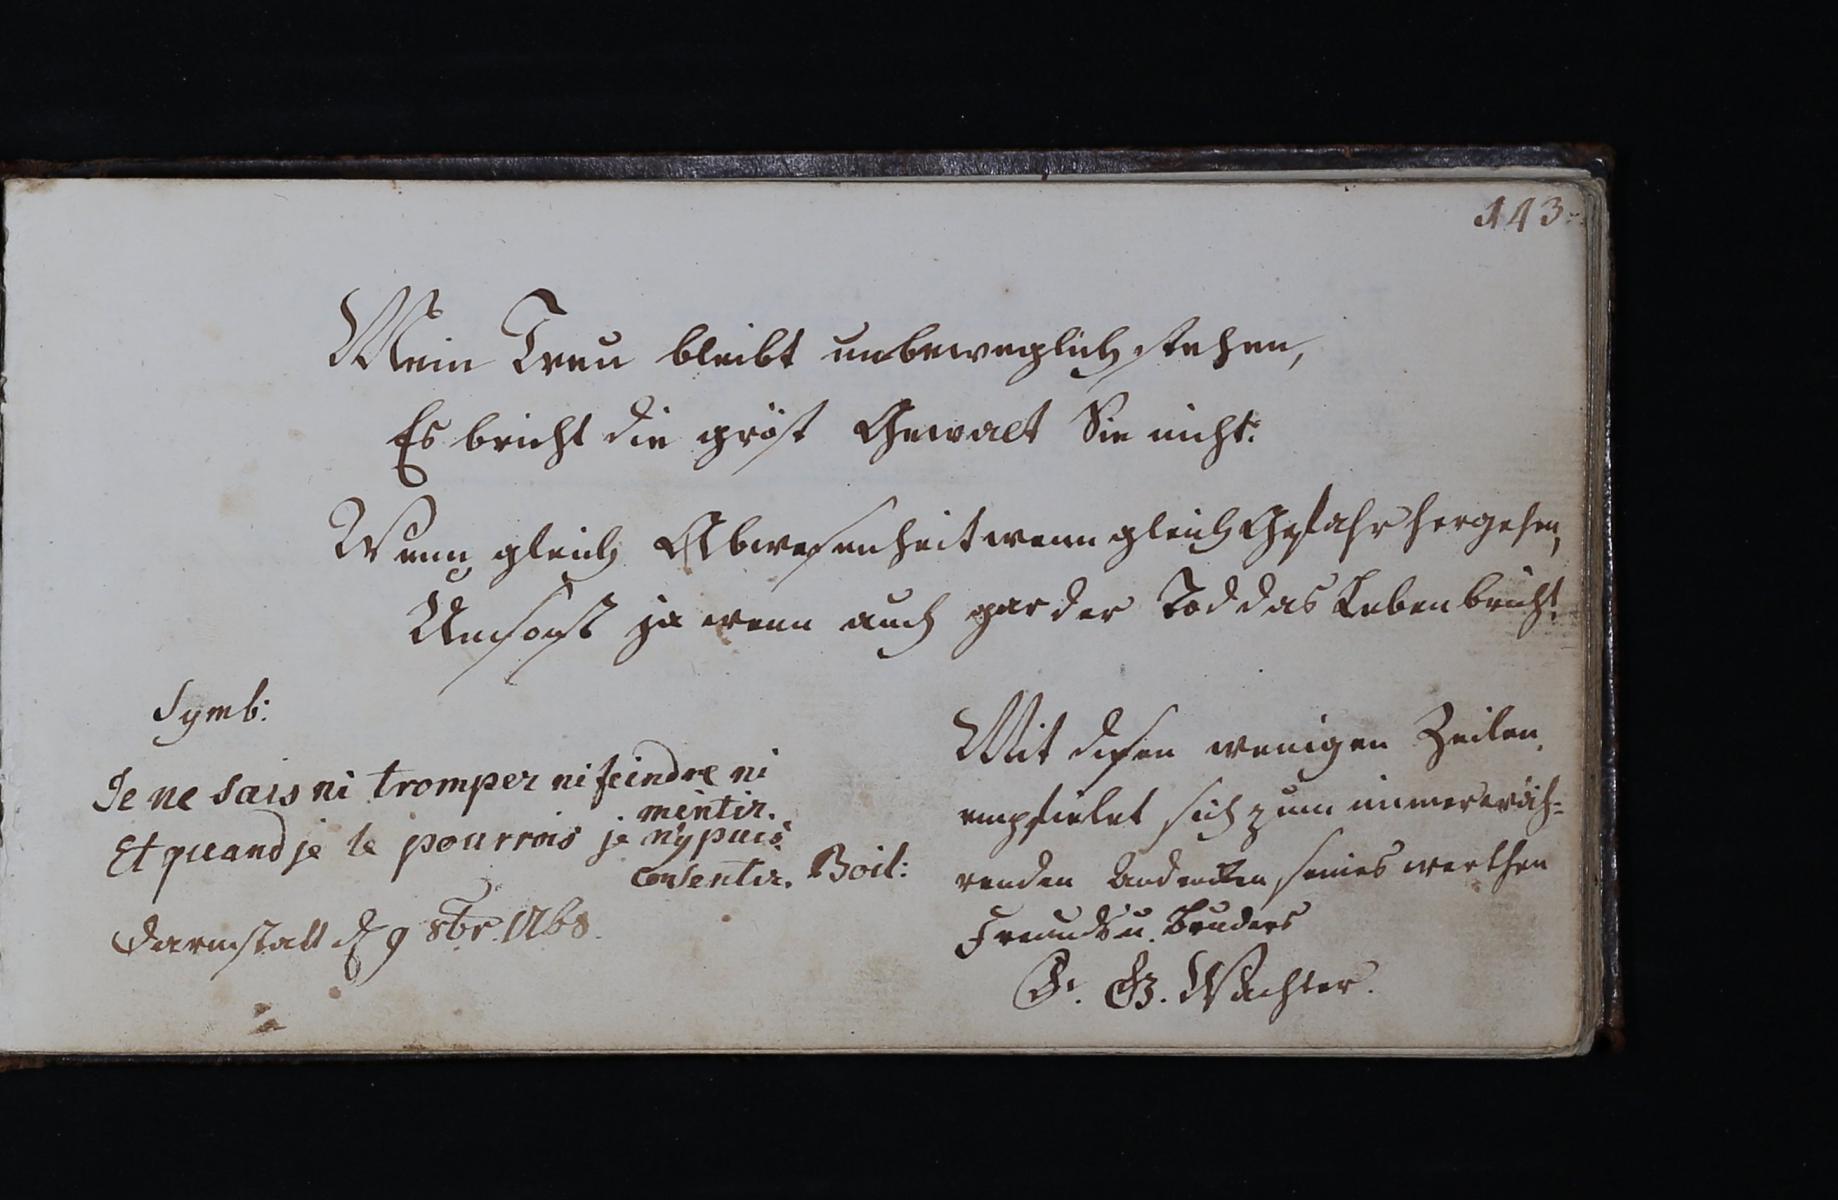 143.
Mein Treu bleibt unbeweglich stehen,
Es bricht die gröst Gewalt Sie nicht.
Wenn gleich Abwesenheit wenn gleich Gefahr hergehen,
Umsonst ja wenn auch gar der Tod das Leben bricht.
Symb:
Je ne sais ni tromper ni feindre ni
mentir.
Et quand je le pourrois je n'y puis
consentir. Boil:
Darmstatt d 9 8br. 1768.
Mit disen wenigen Zeilen,
empfielet sich zum immerwäh=
renden Andencken seines werthen
Freunds u. Bruders
Wachter.